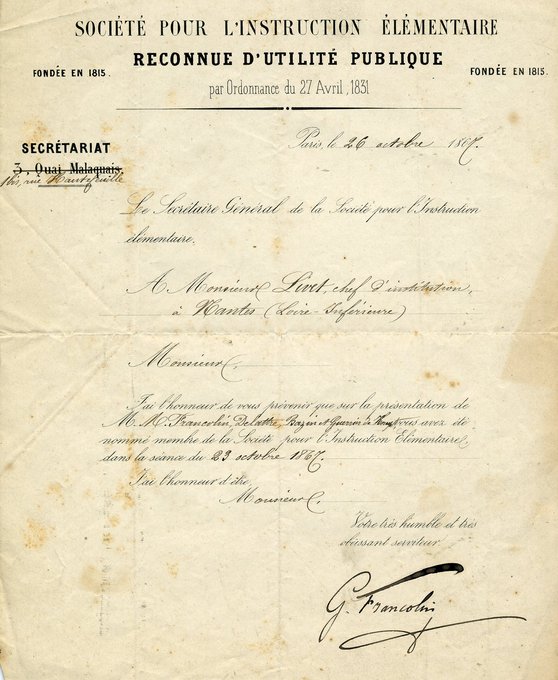 SOCIÉTÉ POUR L'INSTRUCTION ÉLÉMENTAIRE
RECONNUE D'UTILITÉ PUBLIQUE
FONDÉE EN 1815.
FONDÉE EN 1815.
par Ordonnance du 27 Avril, 1831
Paris, le 26 octobre 1867.
SECRÉTARIAT
3, Quai Malaquais.
1 bis, rue Hautefeuille
Le Secrétaire Général de la Société pour l'Instruction
élémentaire.
A Monsieur Livet, chef d'institution,
à Nantes (Loire-Inférieure)
Monsieur,
J'ai l'honneur de vous prévenir que sur la présentation de
M.M. Francolin, Delattre, Bazin et Guerrier de vous avez été
nommé membre de la Société pour l'Instruction Elémentaire
dans la séance du 23 octobre 1867.
J'ai l'honneur d'être,
Monsieur,
Votre très humble et très
obéissant serviteur.
G. Francolin